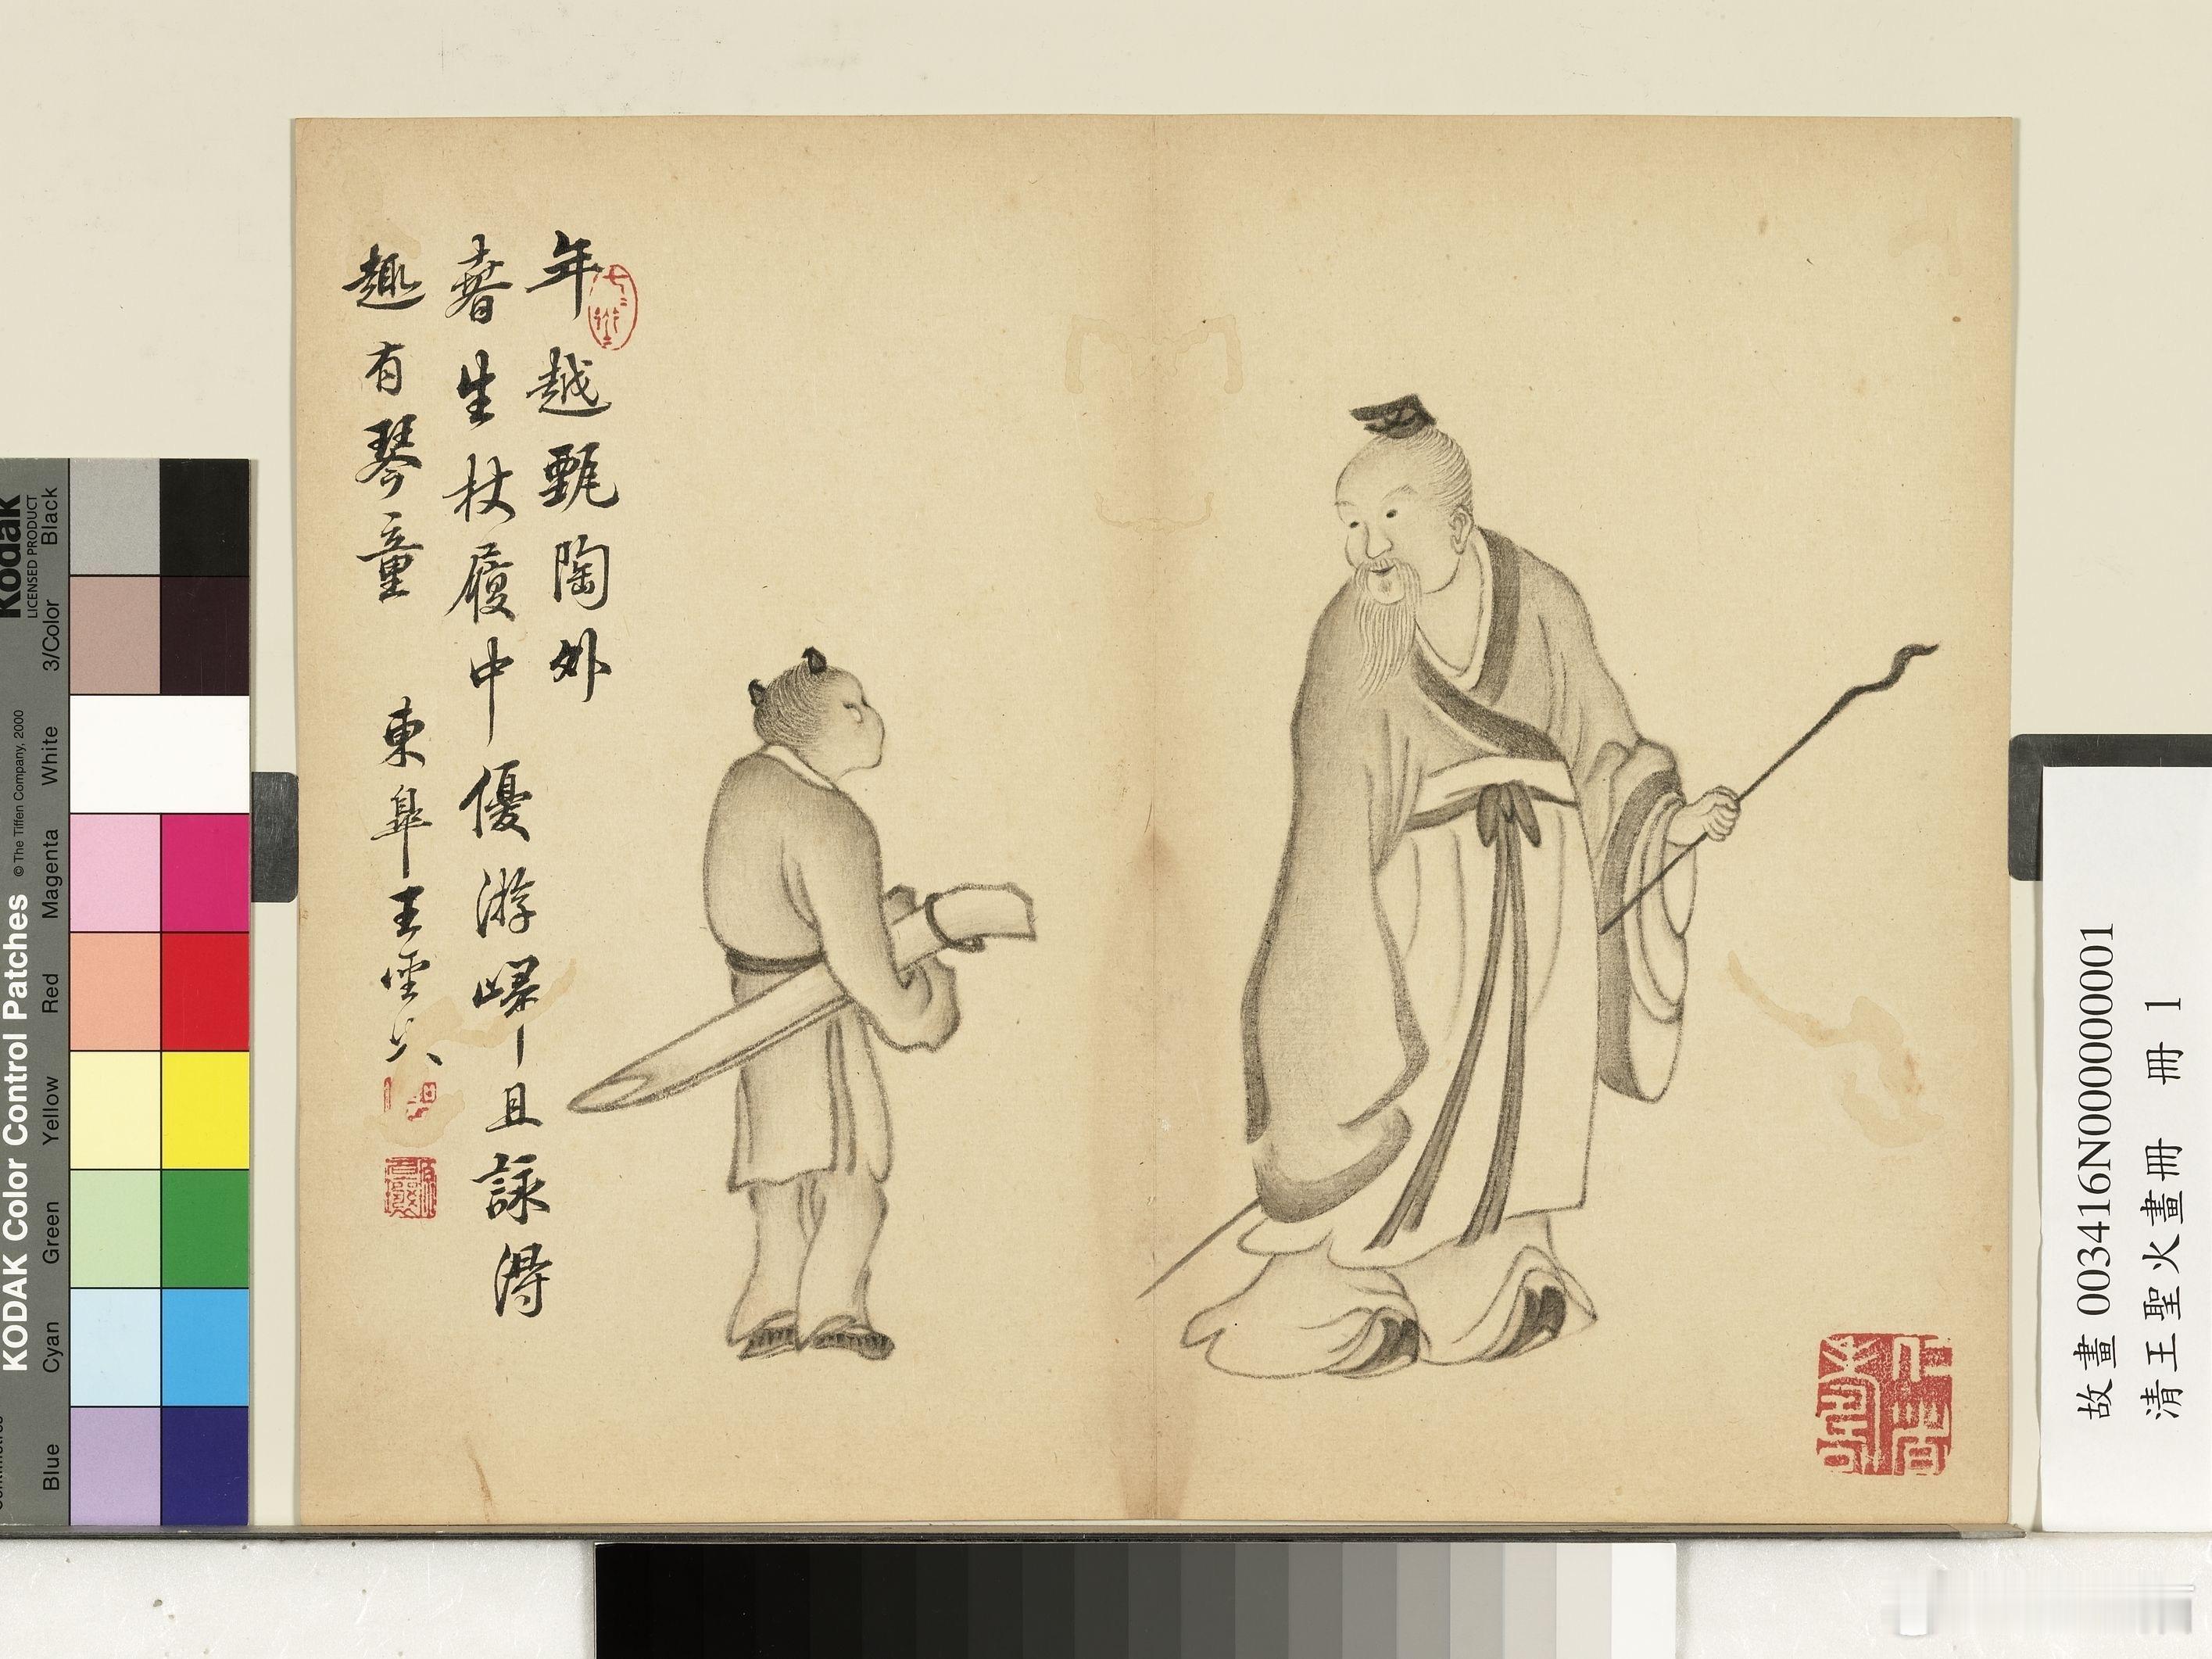 年越甄陶外
春生杖履中優游歸且詠得
趣有琴童
東皐王聖火
故畫 003416N000000001
清王聖火畫冊 冊 1
KODAK Color Control Patches
© The Tiffen Company, 2000
Kodak
LICENSED PRODUCT
Blue
Cyan
Green
Yellow
Red
Magenta
White
3/Color
Black